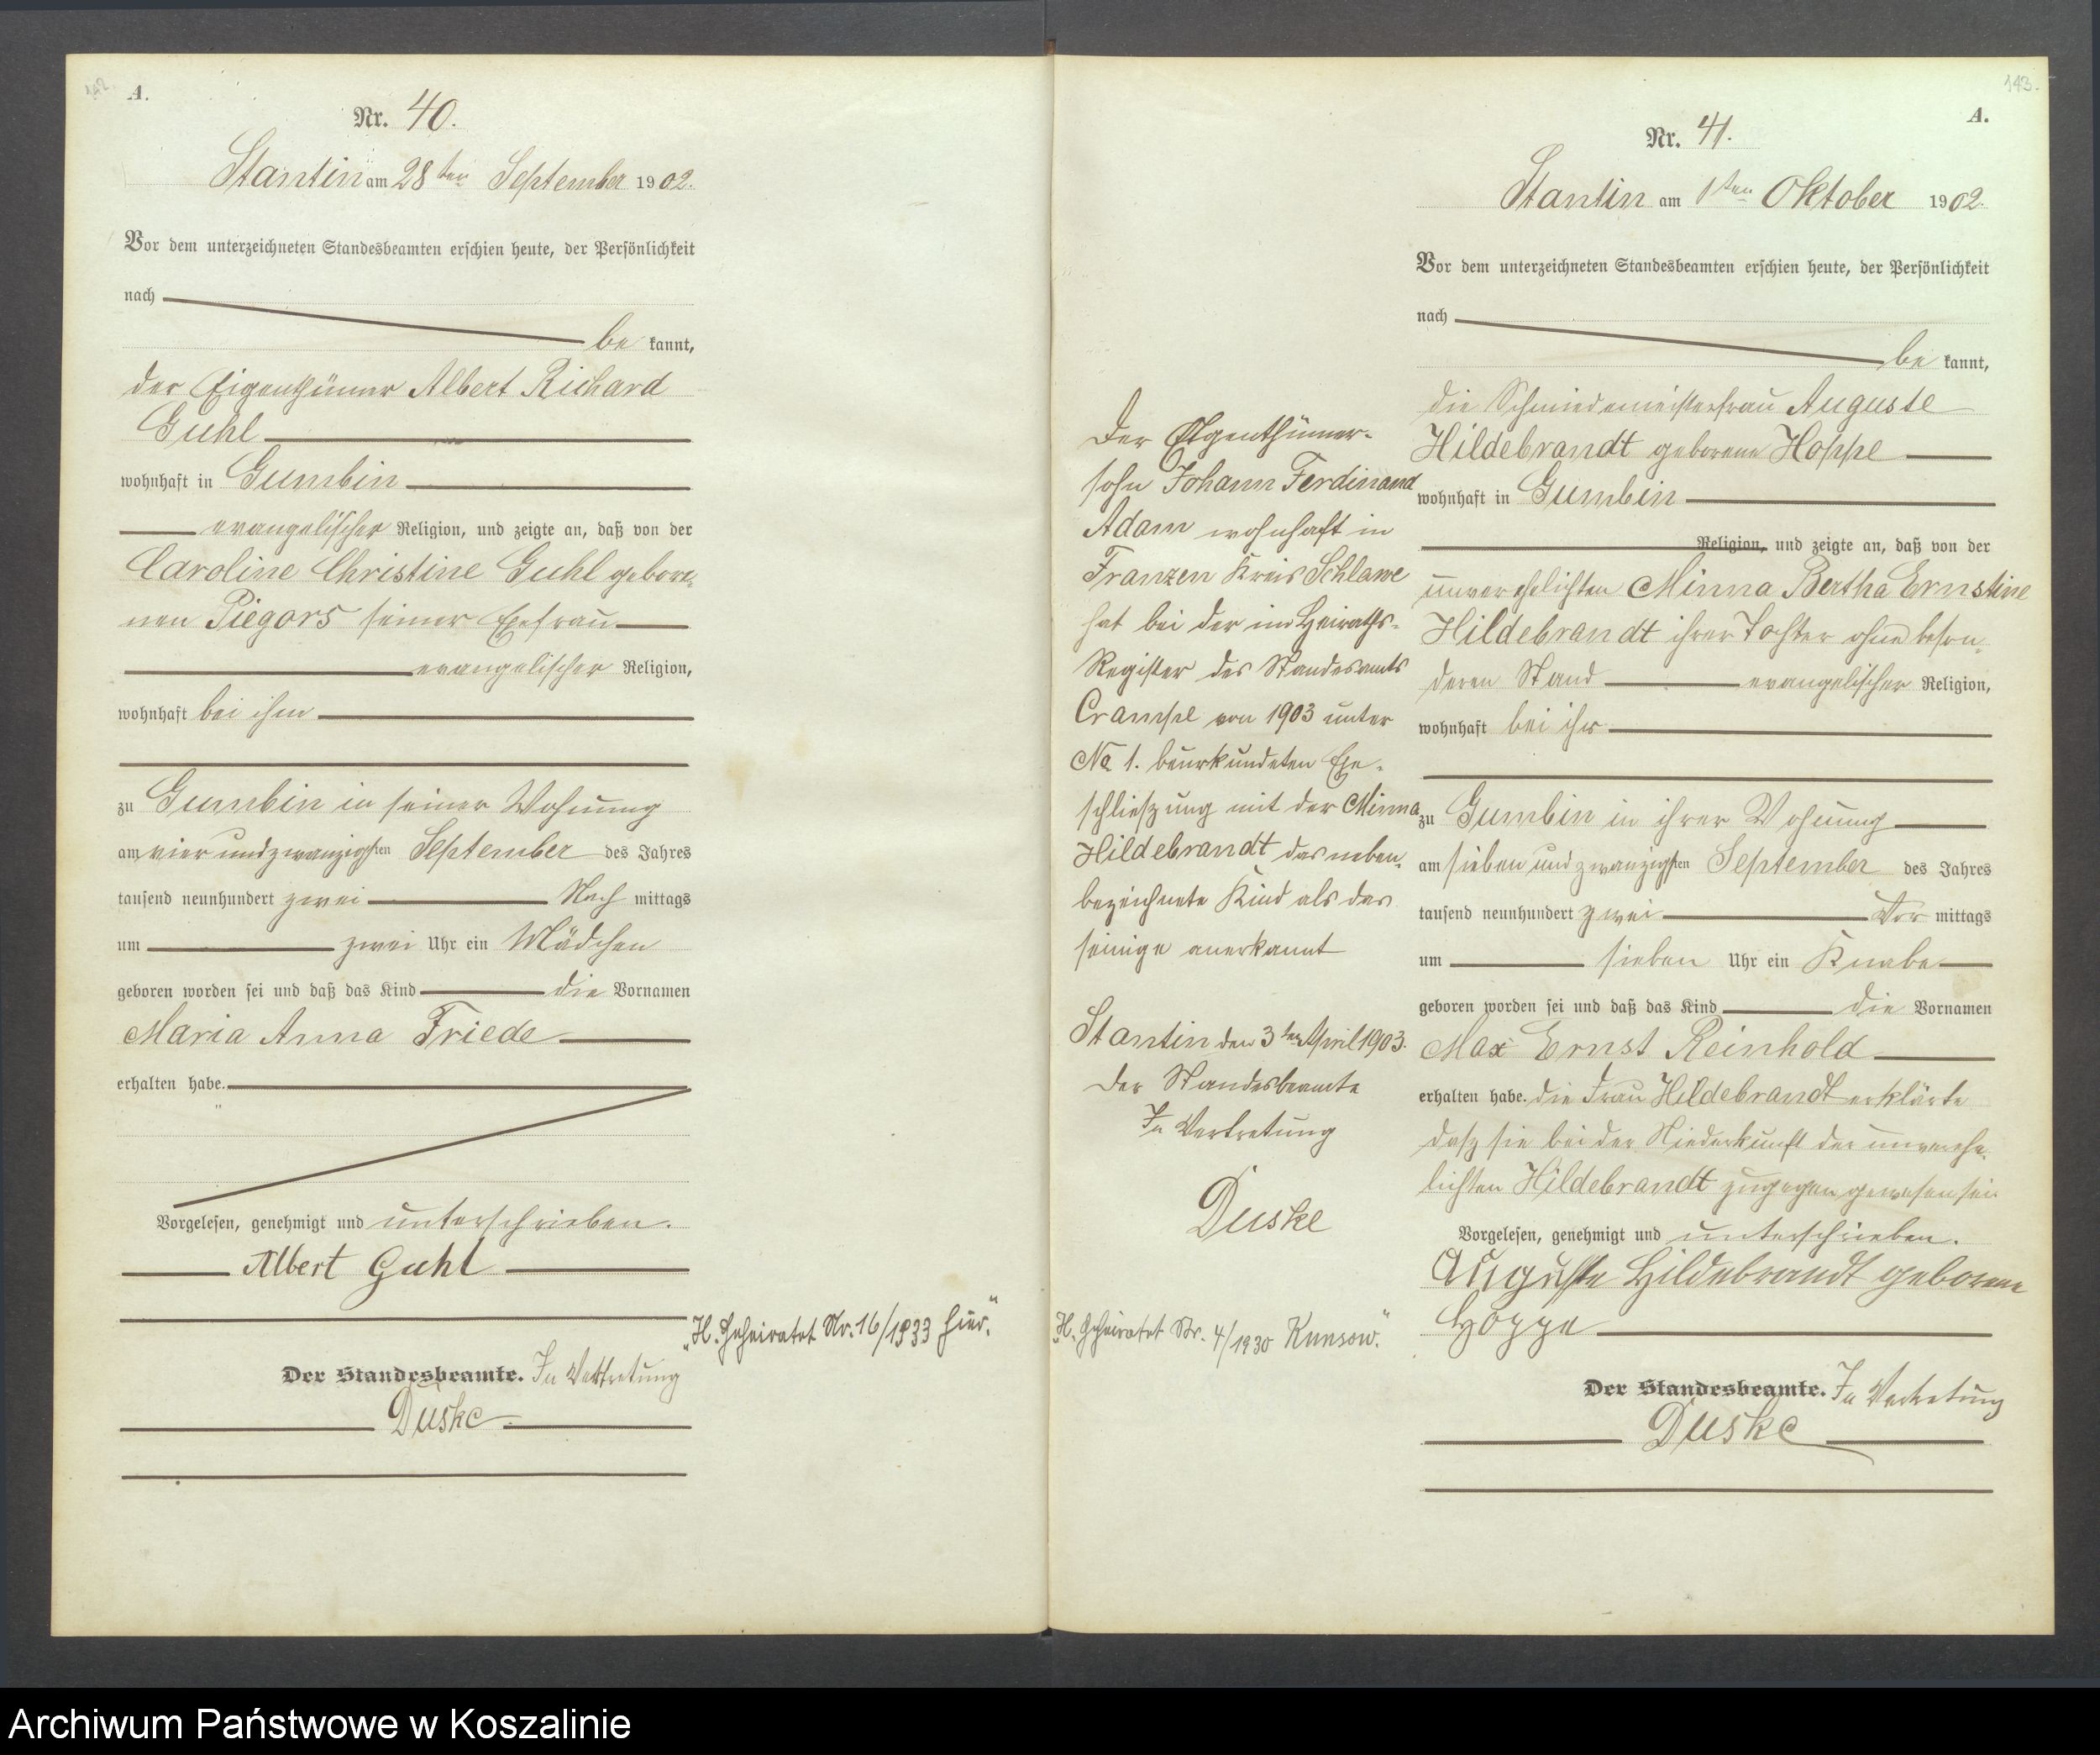 142.
A.
Nr. 40.
Stantin am 28ten September 1902.
Vor dem unterzeichneten Standesbeamten erschien heute, der Persönlichkeit
nach
be kannt,
der Eigenthümer Albert Richard
Guhl
wohnhaft in Gumbin
evangelischer Religion, und zeigte an, daß von der
Caroline Christine Guhl gebore-
nen Piegors seiner Ehefrau
evangelischer Religion,
wohnhaft bei ihm
zu Gumbin in seiner Wohnung
am vier und zwanzigsten September des Jahres
tausend neunhundert zwei Nach mittags
um zwei Uhr ein Mädchen
geboren worden sei und daß das Kind die Vornamen
Maria Anna Friede
erhalten habe.
Vorgelesen, genehmigt und unterschrieben.
Albert Guhl
"H. Geheiratet Nr. 16/1933 hier."
Der Standesbeamte. In Vertretung
Duske
143.
A.
Nr. 41.
Stantin am 1ten Oktober 1902.
Vor dem unterzeichneten Standesbeamten erschien heute, der Persönlichkeit
nach
be kannt,
die Schmiedemeisterfrau Auguste
Hildebrandt geborene Hoppe
wohnhaft in Gumbin
Religion, und zeigte an, daß von der
unverehelichten Minna Bertha Ernstine
Hildebrandt ihrer Tochter ohne beson-
deren Stand evangelischer Religion,
wohnhaft bei ihr
zu Gumbin in ihrer Wohnung
am sieben und zwanzigsten September des Jahres
tausend neunhundert zwei Vor mittags
um sieben Uhr ein Knabe
geboren worden sei und daß das Kind die Vornamen
Max Ernst Reinhold
erhalten habe. die Frau Hildebrandt erklärte
dasz sie bei der Niederkunft der unverehe-
lichten Hildebrandt zugegen gewesen sei
Vorgelesen, genehmigt und unterschrieben.
Auguste Hildebrandt geborene
Hoppe
Der Standesbeamte. In Vertretung
Duske
Der Eigenthümer-
sohn Johann Ferdinand
Adam wohnhaft in
Franzen Kreis Schlawe
hat bei der im Heiraths-
Register des Standesamts
Crampe von 1903 unter
No 1. beurkundeten Ehe-
schlieszung mit der Minna
Hildebrandt das neben-
bezeichnete Kind als das
seinige anerkannt
Stantin den 3ten April 1903.
Der Standesbeamte
In Vertretung
Duske
"H. Geheiratet Nr. 4/1930 Kunsow."
Archiwum Państwowe w Koszalinie